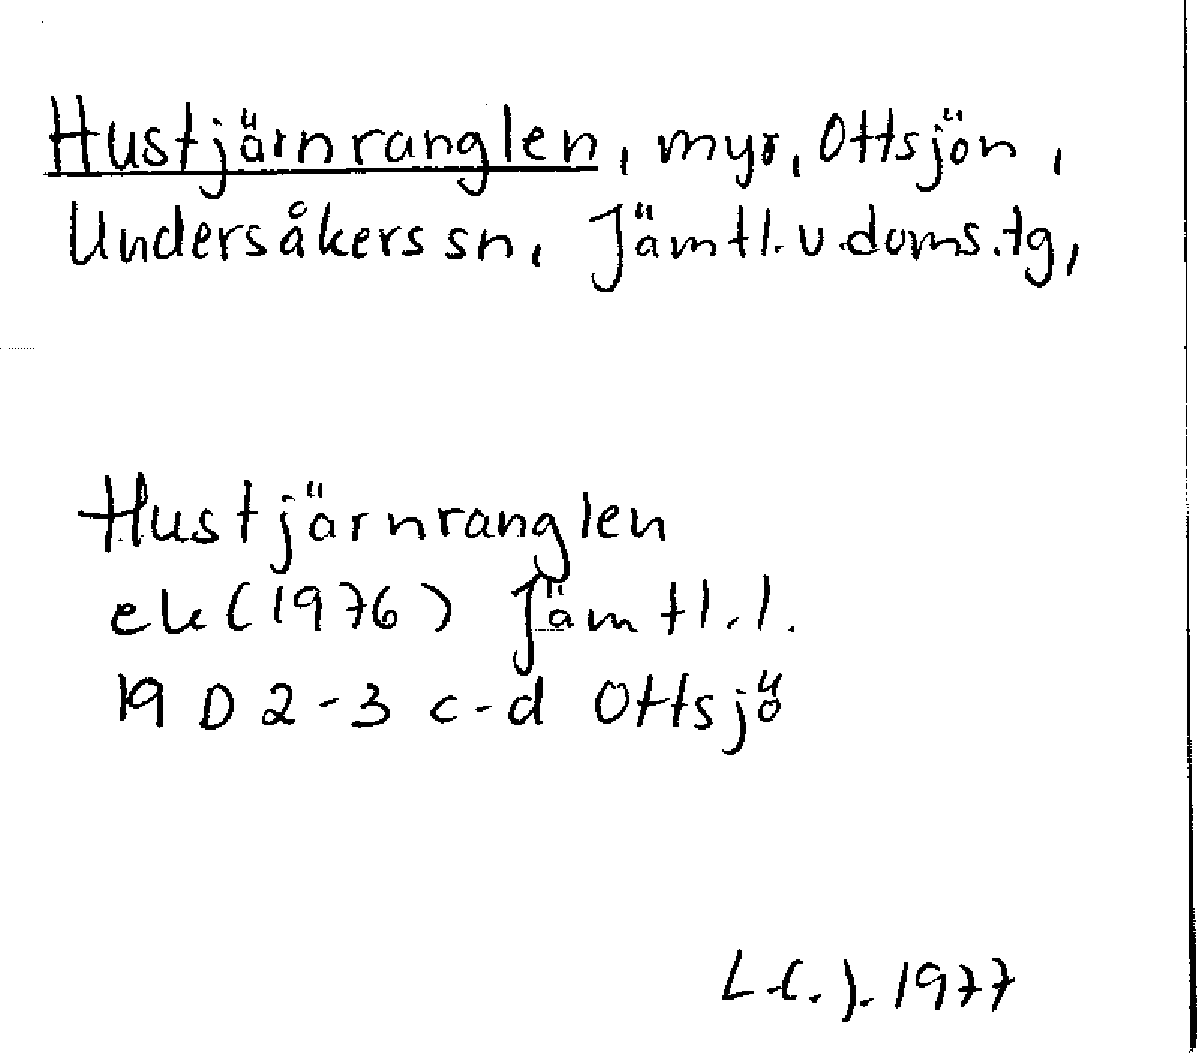 Hustjärnranglen, myr, Ottsjön,
Undersåkers sn, Jämtl. v. doms. tg,
Hustjärnranglen
ek (1976) Jämtl. l.
19 D 2-3 c-d Ottsjö
1977